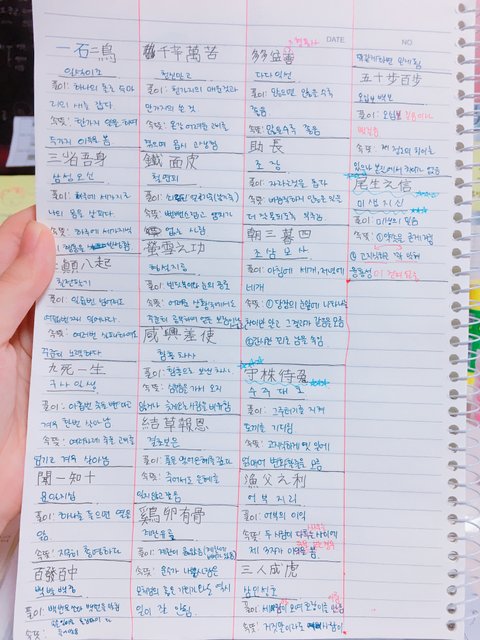 一石二鳥
일석이조
풀이: 하나의 돌로 두마
리의 새를 잡다.
속뜻: 한가지 일을 하여
두가지 이득을 봄
三省吾身
삼성오신
풀이: 하루에 세가지로
나의 몸을 살피다.
속뜻: 하루에 세가지씩
七顚八起
칠전팔기
풀이: 일곱번 넘어져도
여덟번째 일어나다.
속뜻: 여러번 실패하여도
꾸준히 노력하다
九死一生
구사일생
풀이: 아홉번 죽을 뻔하다
겨우 한번 살아남
속뜻: 여러차례 죽을 고비를
넘기고 겨우 살아남
聞一知十
문일지십
풀이: 하나를 들으면 열을
앎.
속뜻: 지극히 총명하다
百發百中
백발백중
풀이: 백번 쏘아 백번을 맞힘
千辛萬苦
천신만고
풀이: 천가지의 매운것과
만가지의 쓴 것
속뜻: 온갖 어려운 고비를
겪으며 몹시 고생함
鐵面皮
철면피
속뜻: 뻔뻔스럽고 염치가
없는 사람
螢雪之功
형설지공
풀이: 반딧불과 눈의 공로
속뜻: 어려운 상황속에서도
꾸준히 공부하여 얻은 보람
咸興差使
함흥차사
풀이: 함흥으로 보낸 차사
속뜻: 심부름을 가서 오지
않거나 늦게오는 사람을 비유함
結草報恩
결초보은
풀이: 풀을 엮어 은혜를 갚다
속뜻: 죽어서도 은혜를
잊지않고 갚음
鷄卵有骨
계란유골
풀이: 계란에 뼈가 있음
속뜻: 운수가 나쁜 사람은
모처럼 좋은 기회가 와도 역시
일이 잘 안됨.
DATE
多多益善
다다익선
풀이: 많으면 많을수록
좋음
속뜻: 많을수록 좋음
助長
조장
풀이: 자라는것을 돕다
속뜻: 바람직하지 않은 일을
더 심해지도록 부추김
朝三暮四
조삼모사
풀이: 아침에 세개, 저녁에
네개
속뜻: ① 당장의 눈앞에 나타나는
차이만 알고 그 결과가 같음을 모름
② 간사한 꾀로 남을 속임
守株待兎
수주대토
풀이: 그루터기를 지켜
토끼를 기다림
속뜻: 고지식하게 옛것에
얽매여 변화할줄을 모름
漁父之利
어부지리
풀이: 어부의 이익
속뜻: 두 사람이 다투는 사이에
제 3자가 이익을 봄
三人成虎
삼인성호
NO
五十步百步
오십보백보
尾生之信
미생지신
풀이: 미생의 믿음
속뜻: ① 약속을 굳게 지킴
융통성이 없음